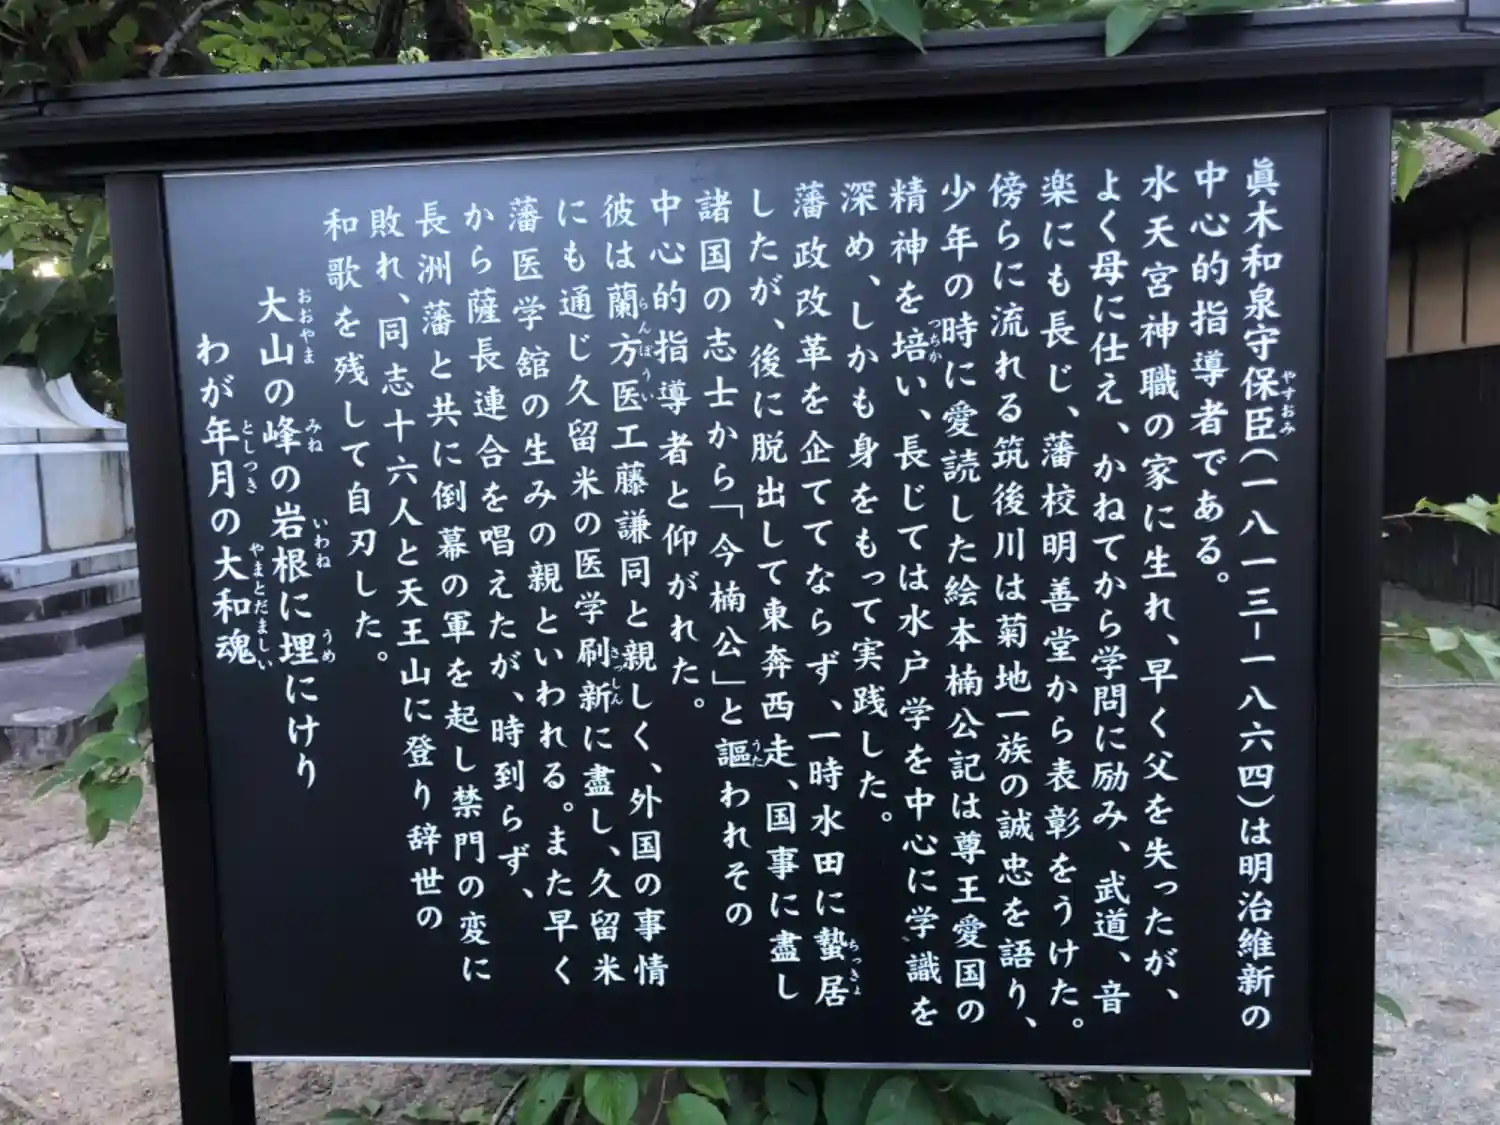 眞木和泉守保臣(一八一三ー一八六四)は明治維新の
中心的指導者である。
水天宮神職の家に生れ、早く父を失ったが、
よく母に仕え、かねてから学問に励み、武道、音
楽にも長じ、藩校明善堂から表彰をうけた。
傍らに流れる筑後川は菊地一族の誠忠を語り、
少年の時に愛読した絵本楠公記は尊王愛国の
精神を培い、長じては水戸学を中心に学識を
深め、しかも身をもって実践した。
藩政改革を企ててならず、一時水田に蟄居
したが、後に脱出して東奔西走、国事に盡し
諸国の志士から「今楠公」と謳われその
中心的指導者と仰がれた。
彼は蘭方医工藤謙同と親しく、外国の事情
にも通じ久留米の医学刷新に盡し、久留米
藩医学舘の生みの親といわれる。また早く
から薩長連合を唱えたが、時到らず、
長洲藩と共に倒幕の軍を起し禁門の変に
敗れ、同志十六人と天王山に登り辞世の
和歌を残して自刃した。
大山の峰の岩根に埋にけり
わが年月の大和魂
やすおみ
つちか
ちっきょ
うた
らんぽうい
さっしん
おおやま
みね
いわね
うめ
としつき
やまとだましい